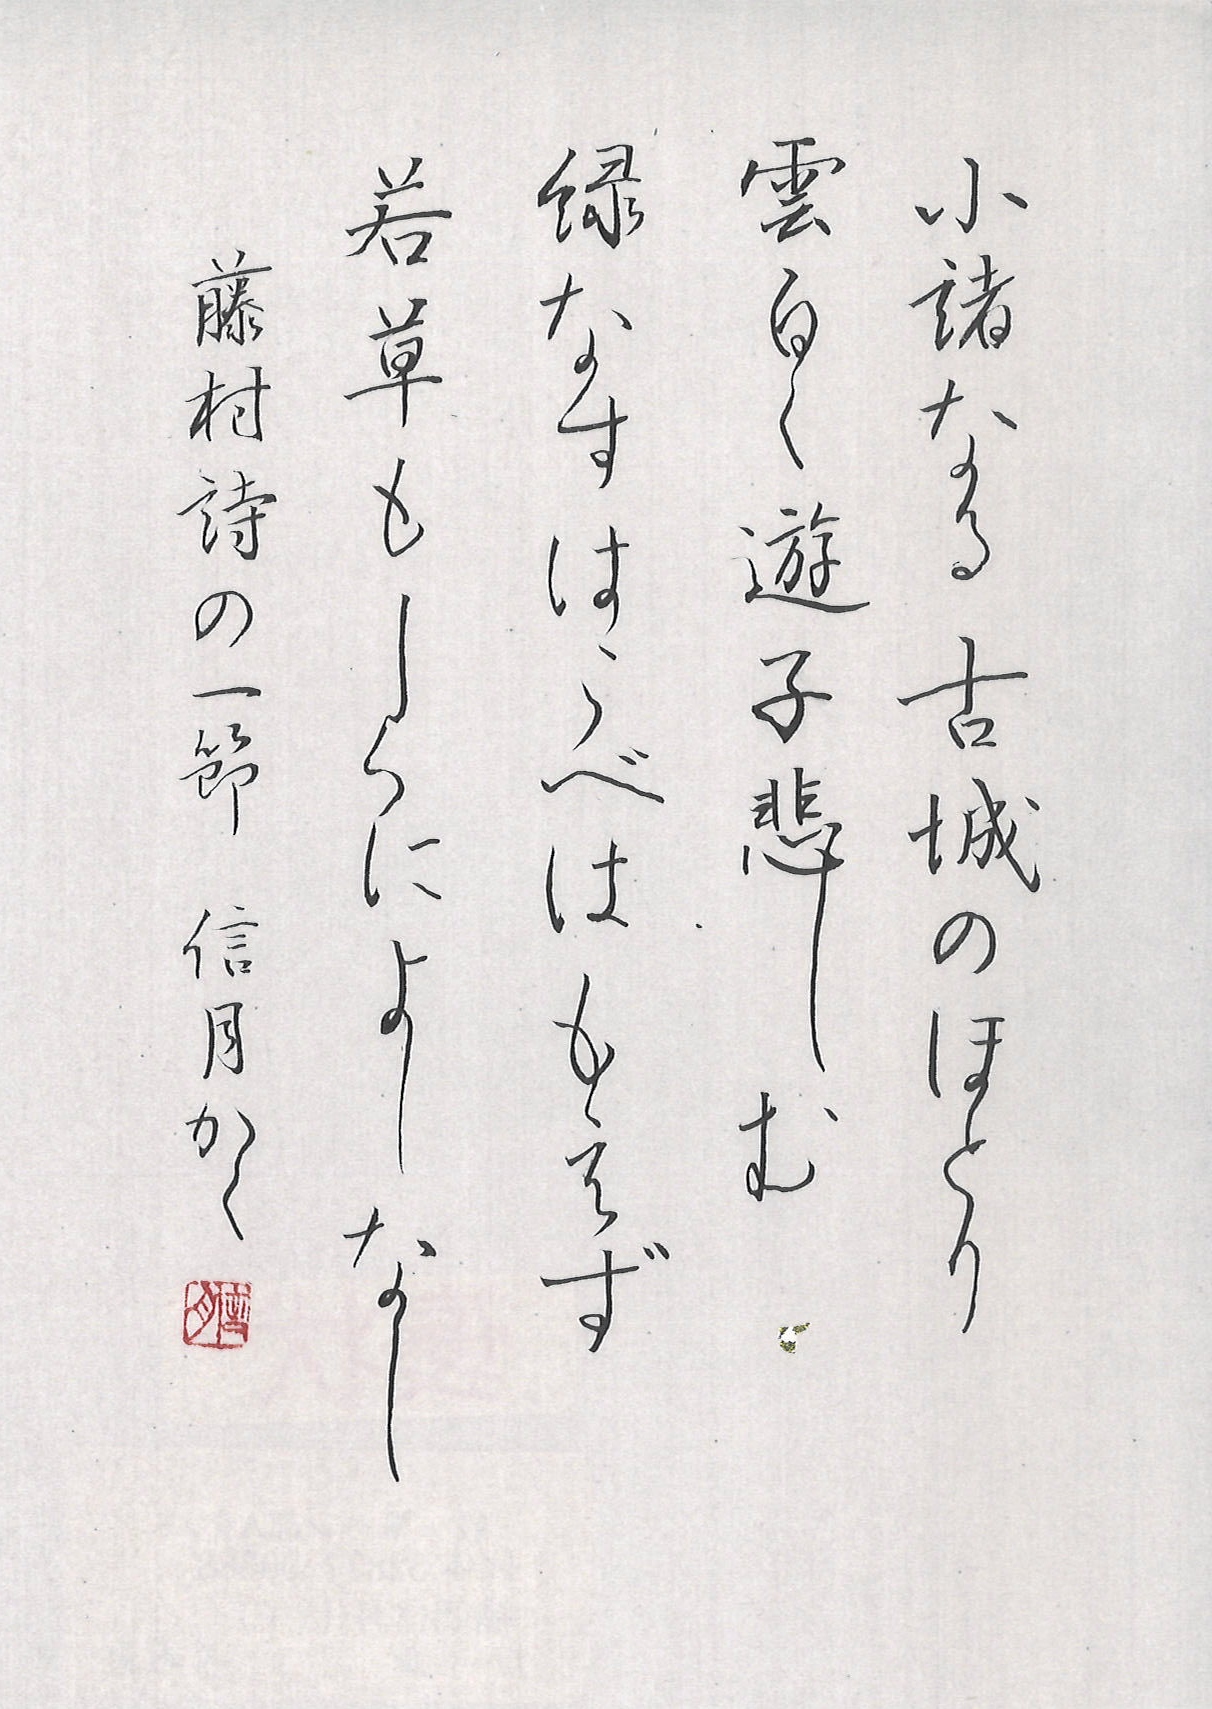 小諸なる古城のほとり
雲白く遊子悲しむ
緑なすはこべはもえず
若草もしくによしなし
藤村詩の一節 信月かく